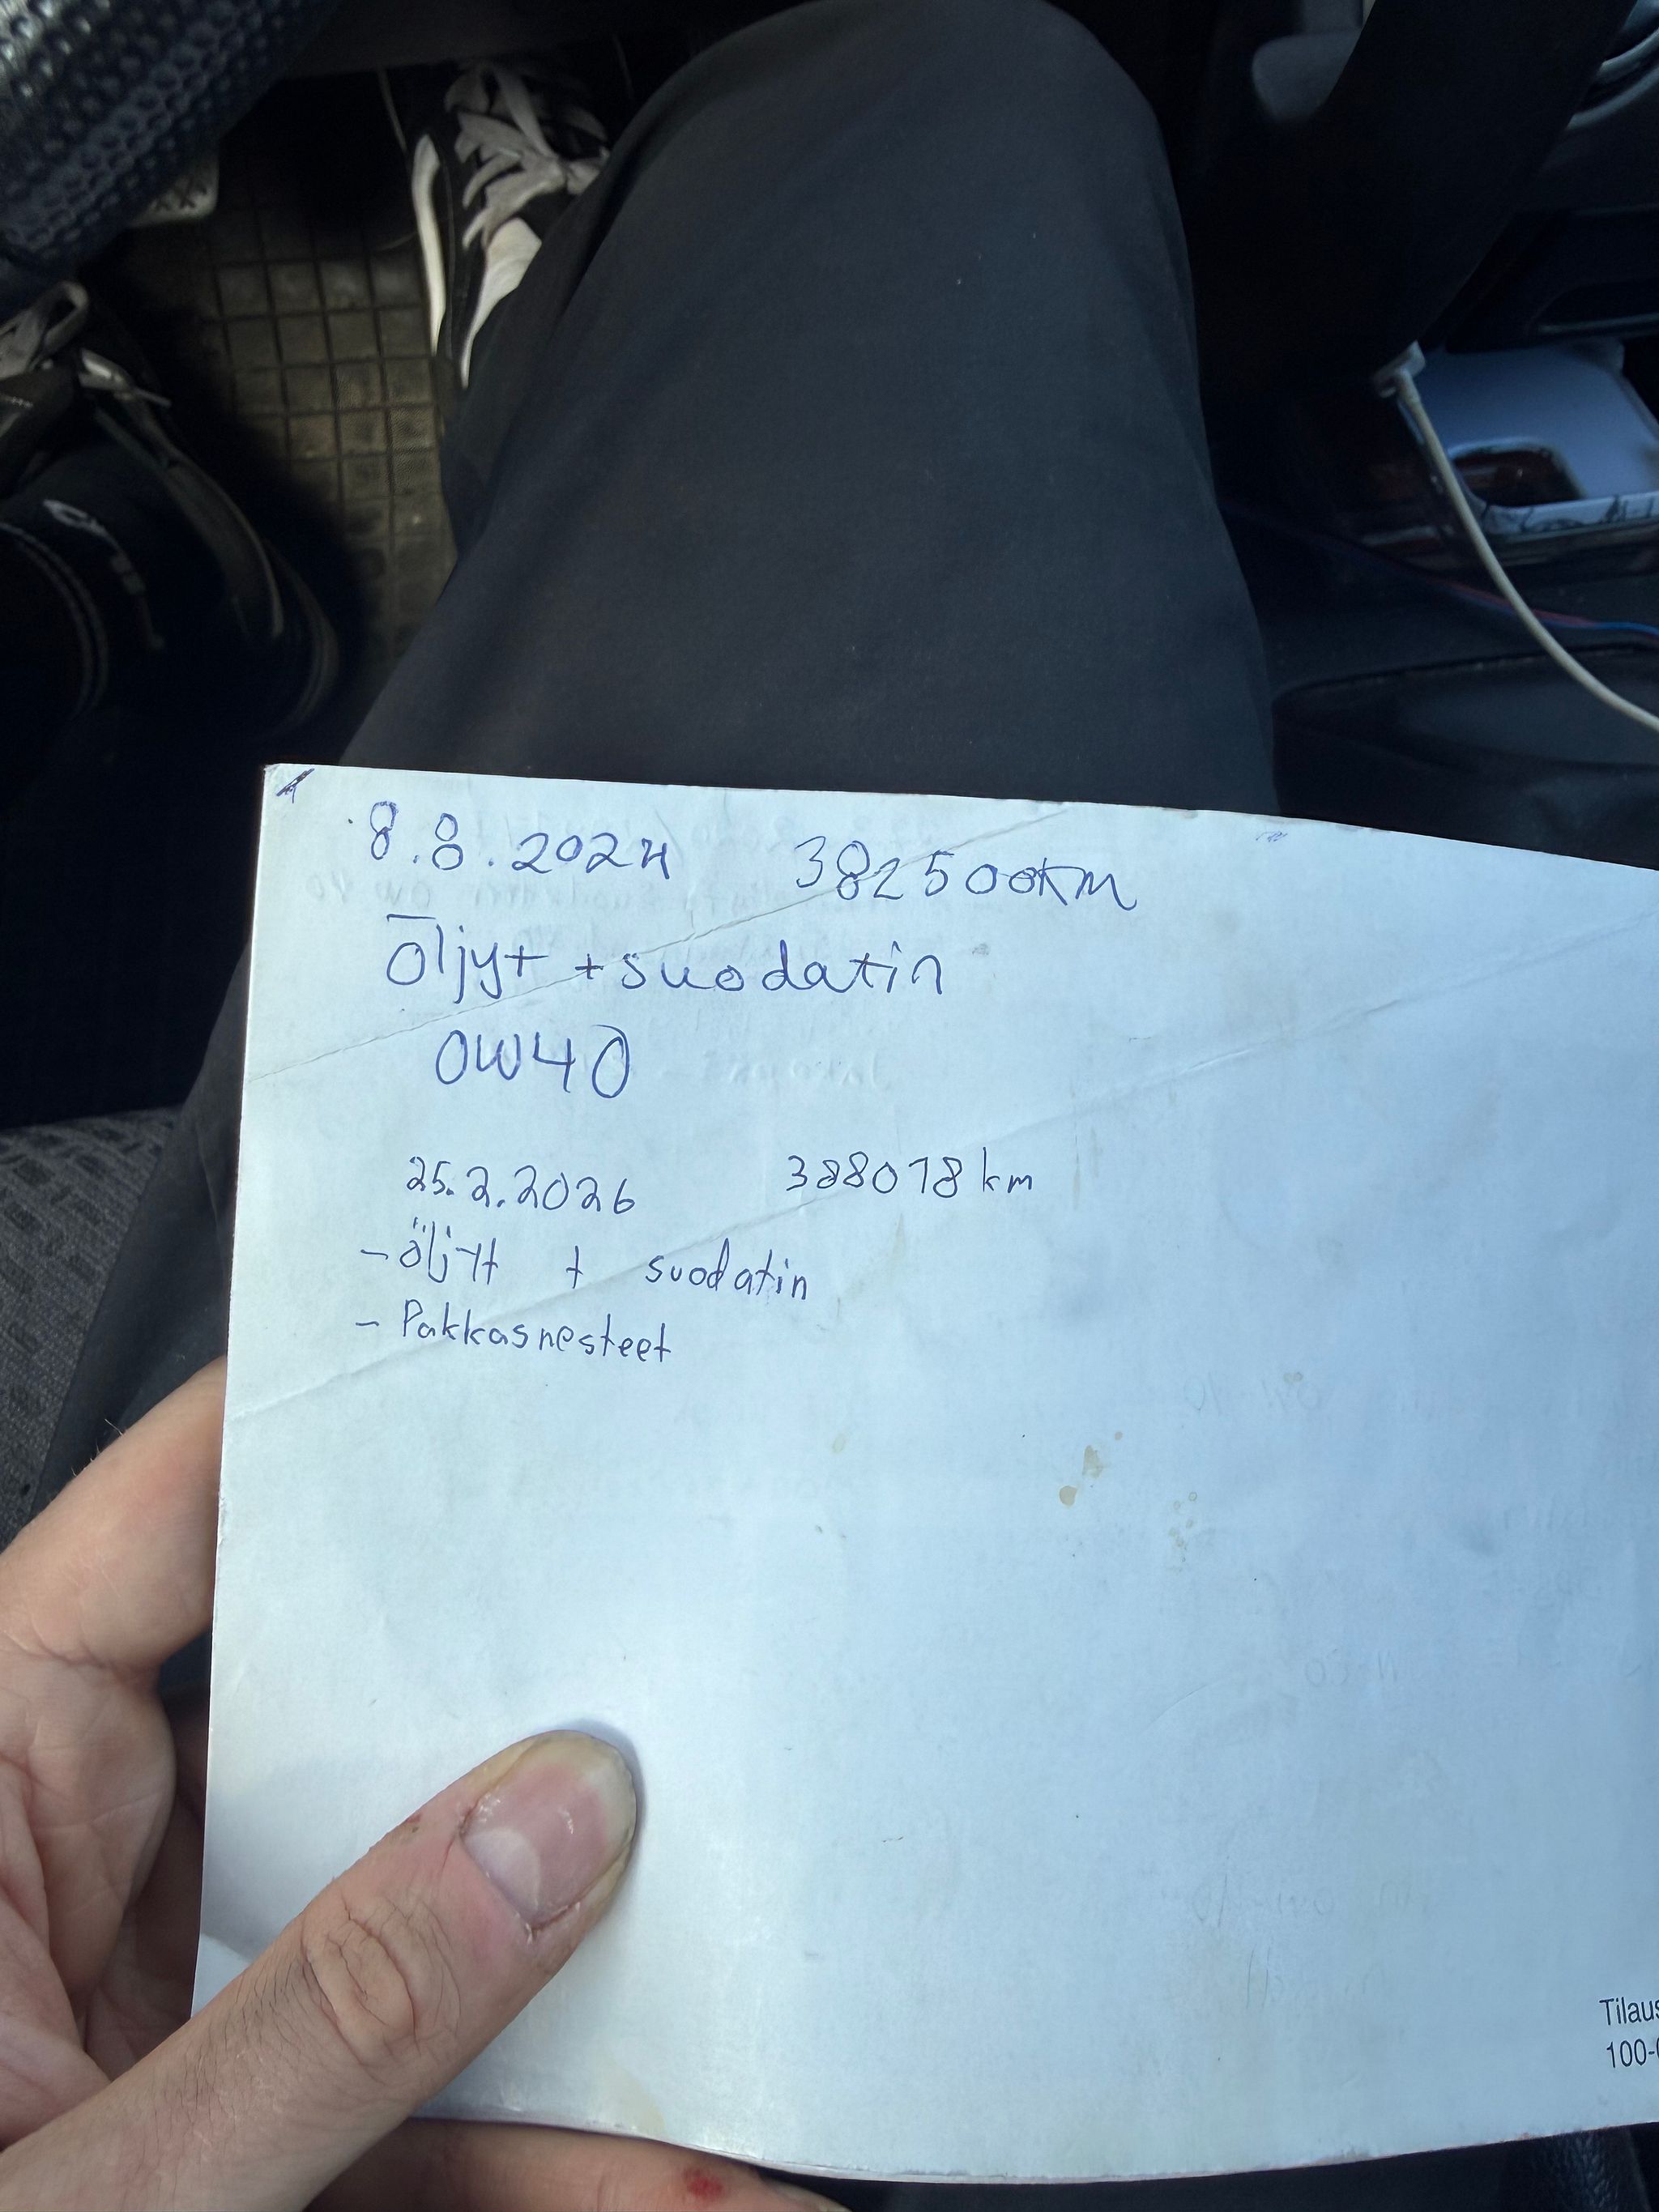 8.8.2024 382500km
Öljyt + suodatin
0W40
25.2.2026 388078km
- Öljyt + suodatin
- Pakkasnesteet
Tilaus
100-